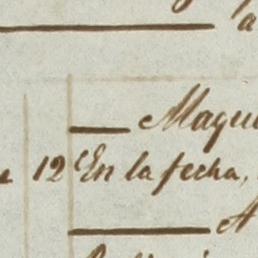 a
Maqui
12 En la fecha,
A